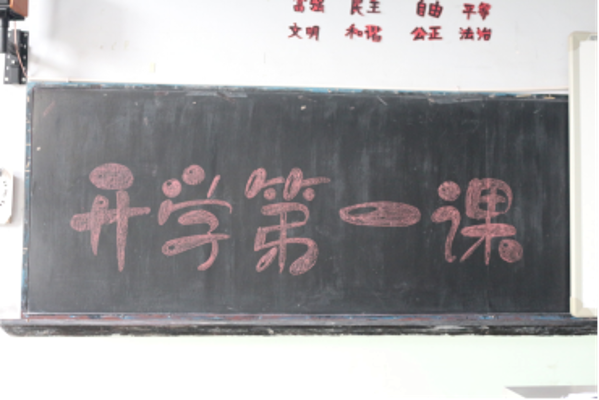 富强 民主 自由 平等
文明 和谐 公正 法治
开学第一课